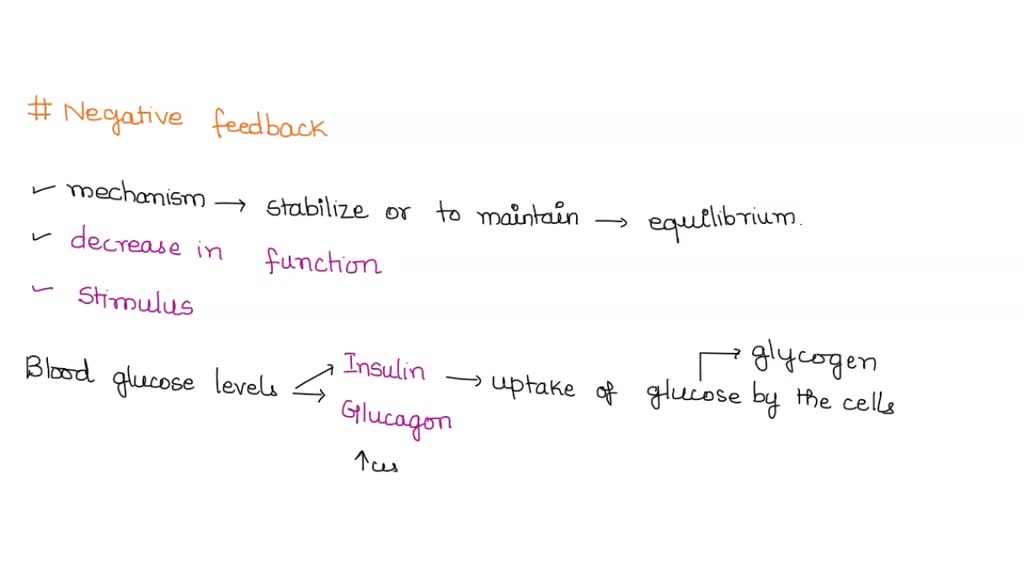 # Negative feedback
✓ mechanism → stabilize or to maintain → equilibrium.
✓ decrease in function
✓ stimulus
→ glycogen
Blood glucose levels → Insulin → uptake of glucose by the cells
→ Glucagon
↑